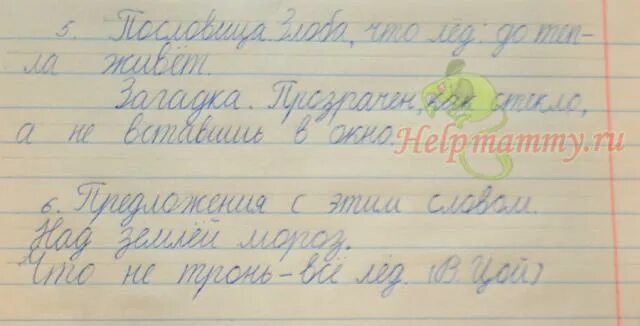 5. Пословица. Злоба, что лёд: до теп-
ла живёт.
Загадка. Прозрачен, как стекло,
а не вставишь в окно.
Helpmammy.ru
6. Предложения с этим словом.
Над землёй мороз.
Что не тронь – всё лёд. (В. Цой)